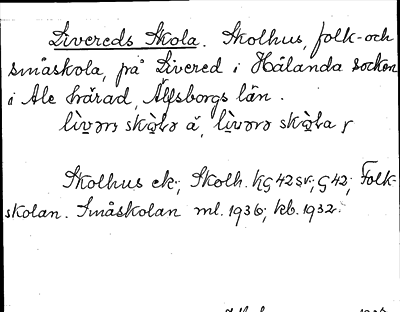 Livereds Skola. Skolhus, folk- och
småskola, på Livered i Hålanda socken
i Ale härad, Älfsborgs län.
Skolhus ek.; Skolh. kG 42 sv; G 42; Folk-
skolan. Småskolan ml. 1936; kb. 1932.